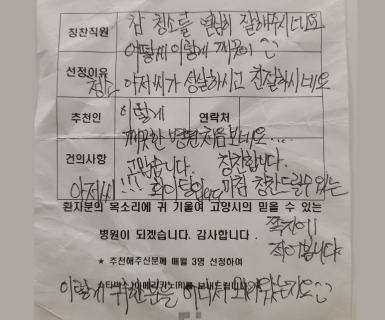 칭찬직원
참 청소를 열심히 잘해주시네요
어떻게 이렇게 깨끗이
선정이유
청소 아저씨가 성실하시고 친절하시네요
추천인
이렇게
연락처
깨끗한 병원 처음 보네요....
건의사항
고맙습니다. 칭찬합니다.
아저씨!!! 화이팅 칭찬드릴수있는
환자분의 목소리에 귀 기울여 고양시의 믿을 수 있는
쪽지에
병원이 되겠습니다. 감사합니다.
적어봅니다
★ 추천해주신분께 매월 3명 선정하여
이렇게
스타벅스 아메리카노(R)를 보내드립니다